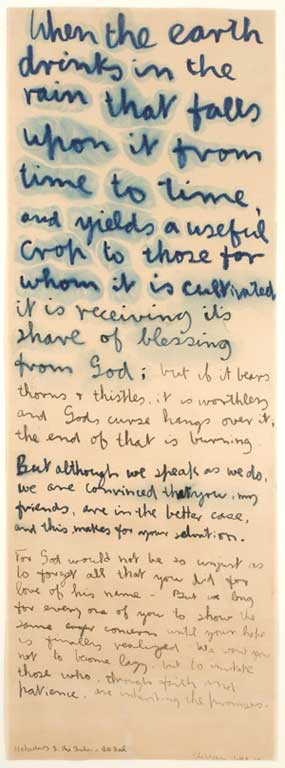 When the earth
drinks in the
rain that falls
upon it from
time to time,
and yields a useful
crop to those for
whom it is cultivated
it is receiving its
share of blessing
from God; but if it bears
thorns & thistles, it is worthless
and Gods curse hangs over it,
the end of that is burning.
But although we speak as we do,
we are convinced that you, my
friends, are in the better case,
and this makes for your salvation.
For God would not be so unjust as
to forget all that you did for
love of his name – But we long
for every one of you to show the
same eager concern until your hope
is finally realized. We want you
not to become lazy, but to imitate
those who, through faith and
patience, are inheriting the promises.
Hebrews